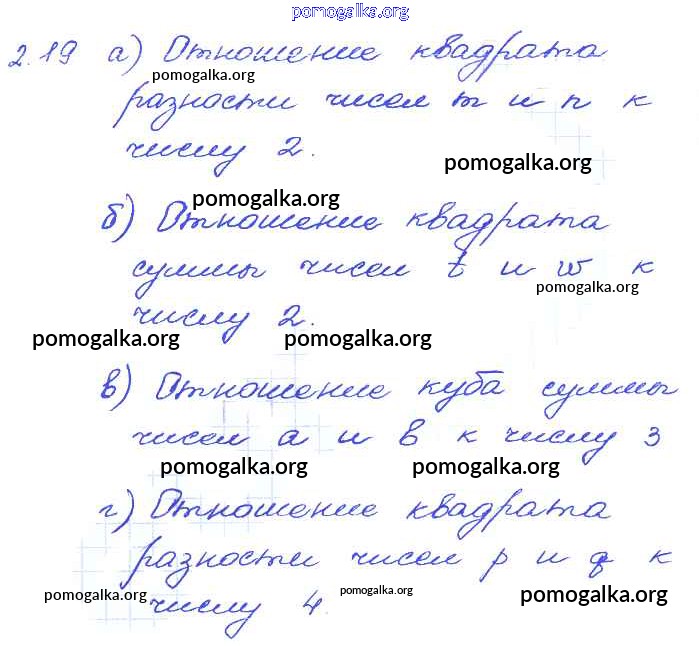 pomogalka.org
2.19 а) Отношение квадрата
pomogalka.org
разности чисел m и n к
числу 2.
pomogalka.org
pomogalka.org
б) Отношение квадрата
суммы чисел t и w к
pomogalka.org
числу 2.
pomogalka.org pomogalka.org
в) Отношение куба суммы
чисел a и b к числу 3
pomogalka.org pomogalka.org
г) Отношение квадрата
разности чисел p и q к
pomogalka.org pomogalka.org pomogalka.org
числу 4.